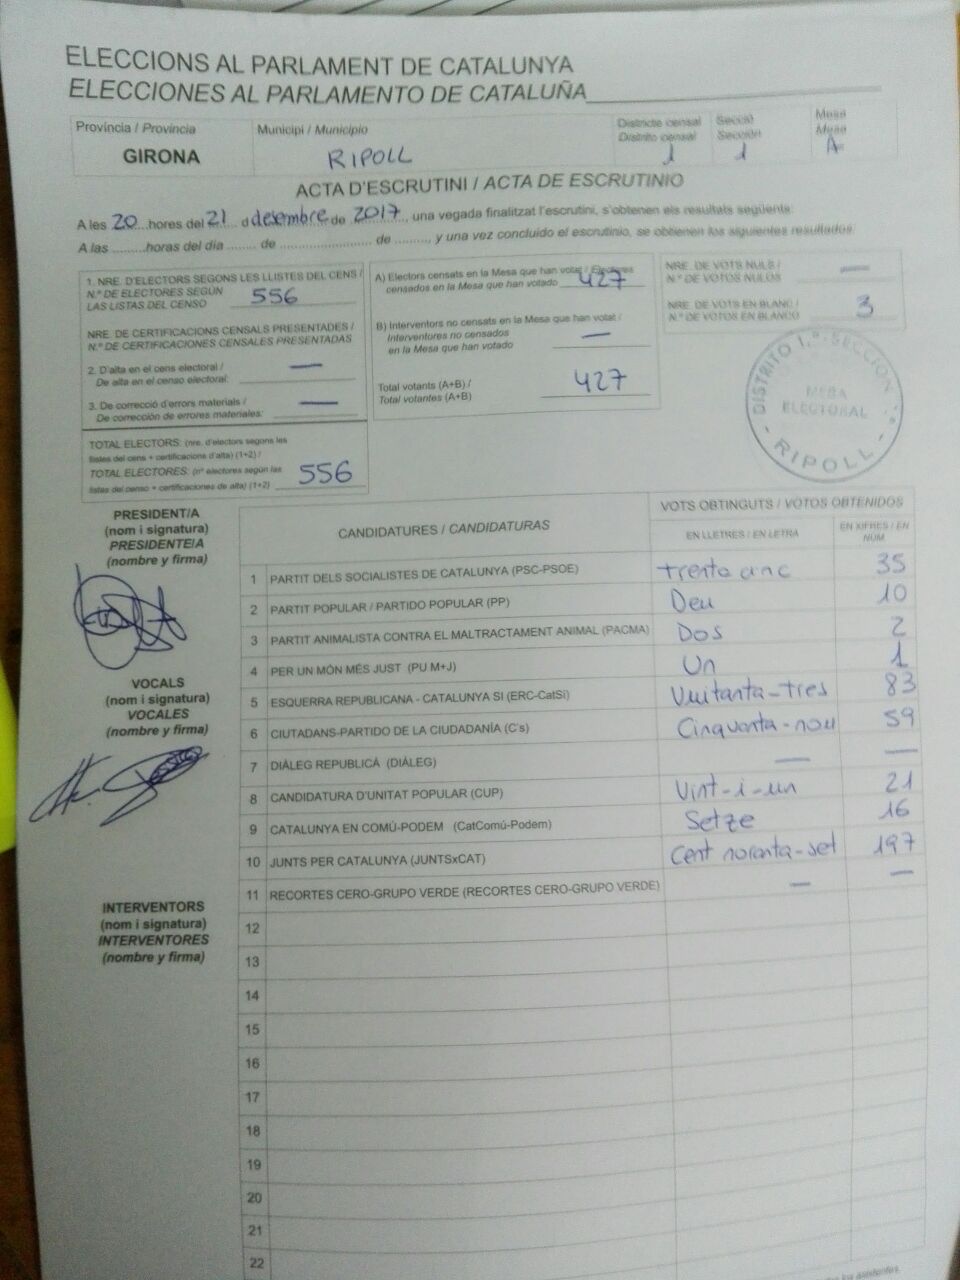 ELECCIONS AL PARLAMENT DE CATALUNYA
ELECCIONES AL PARLAMENTO DE CATALUÑA
Província / Provincia
GIRONA
Municipi / Municipio
RIPOLL
Districte censal
Distrito censal
1
Secció
Sección
1
Mesa
Mesa
A
ACTA D'ESCRUTINI / ACTA DE ESCRUTINIO
A les 20 hores del 21 d desembre de 2017, una vegada finalitzat l'escrutini, s'obtenen els resultats següents:
A las .........horas del día ........ de ........................ de ........., y una vez concluido el escrutinio, se obtienen los siguientes resultados:
1. NRE. D'ELECTORS SEGONS LES LLISTES DEL CENS /
N.º DE ELECTORES SEGÚN
LAS LISTAS DEL CENSO 556
NRE. DE CERTIFICACIONS CENSALS PRESENTADES /
N.º DE CERTIFICACIONES CENSALES PRESENTADAS
2. D'alta en el cens electoral /
De alta en el censo electoral: —
3. De correcció d'errors materials /
De corrección de errores materiales: —
TOTAL ELECTORS: (nre. d'electors segons les
llistes del cens + certificacions d'alta) (1+2) /
TOTAL ELECTORES: (nº electores según las
listas del censo + certificaciones de alta) (1+2) 556
A) Electors censats en la Mesa que han votat / Electores
censados en la Mesa que han votado 427
B) Interventors no censats en la Mesa que han votat /
Interventores no censados
en la Mesa que han votado —
Total votants (A+B) /
Total votantes (A+B) 427
NRE. DE VOTS NULS /
N.º DE VOTOS NULOS —
NRE. DE VOTS EN BLANC /
N.º DE VOTOS EN BLANCO 3
DISTRITO 1.º-SECCION 1.ª
MESA
ELECTORAL
- RIPOLL -
PRESIDENT/A
(nom i signatura)
PRESIDENTE/A
(nombre y firma)
VOCALS
(nom i signatura)
VOCALES
(nombre y firma)
INTERVENTORS
(nom i signatura)
INTERVENTORES
(nombre y firma)
CANDIDATURES / CANDIDATURAS
VOTS OBTINGUTS / VOTOS OBTENIDOS
EN LLETRES / EN LETRA
EN XIFRES / EN
NÚM.
1 PARTIT DELS SOCIALISTES DE CATALUNYA (PSC-PSOE) trenta cinc 35
2 PARTIT POPULAR / PARTIDO POPULAR (PP) Deu 10
3 PARTIT ANIMALISTA CONTRA EL MALTRACTAMENT ANIMAL (PACMA) Dos 2
4 PER UN MÓN MÉS JUST (PU M+J) Un 1
5 ESQUERRA REPUBLICANA - CATALUNYA SÍ (ERC-CatSí) Vuitanta-tres 83
6 CIUTADANS-PARTIDO DE LA CIUDADANÍA (C's) Cinquanta-nou 59
7 DIÀLEG REPUBLICÀ (DIÀLEG) — —
8 CANDIDATURA D'UNITAT POPULAR (CUP) Vint-i-un 21
9 CATALUNYA EN COMÚ-PODEM (CatComú-Podem) Setze 16
10 JUNTS PER CATALUNYA (JUNTSxCAT) Cent noranta-set 197
11 RECORTES CERO-GRUPO VERDE (RECORTES CERO-GRUPO VERDE) — —
12
13
14
15
16
17
18
19
20
21
22